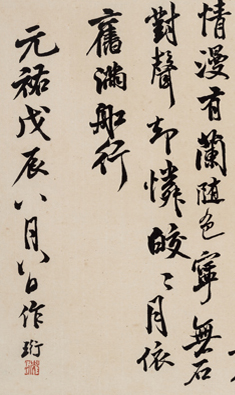 情漫有蘭随色寧無石
對聲却憐皎〻月依
舊滿舩行
元祐戊辰八月八日作